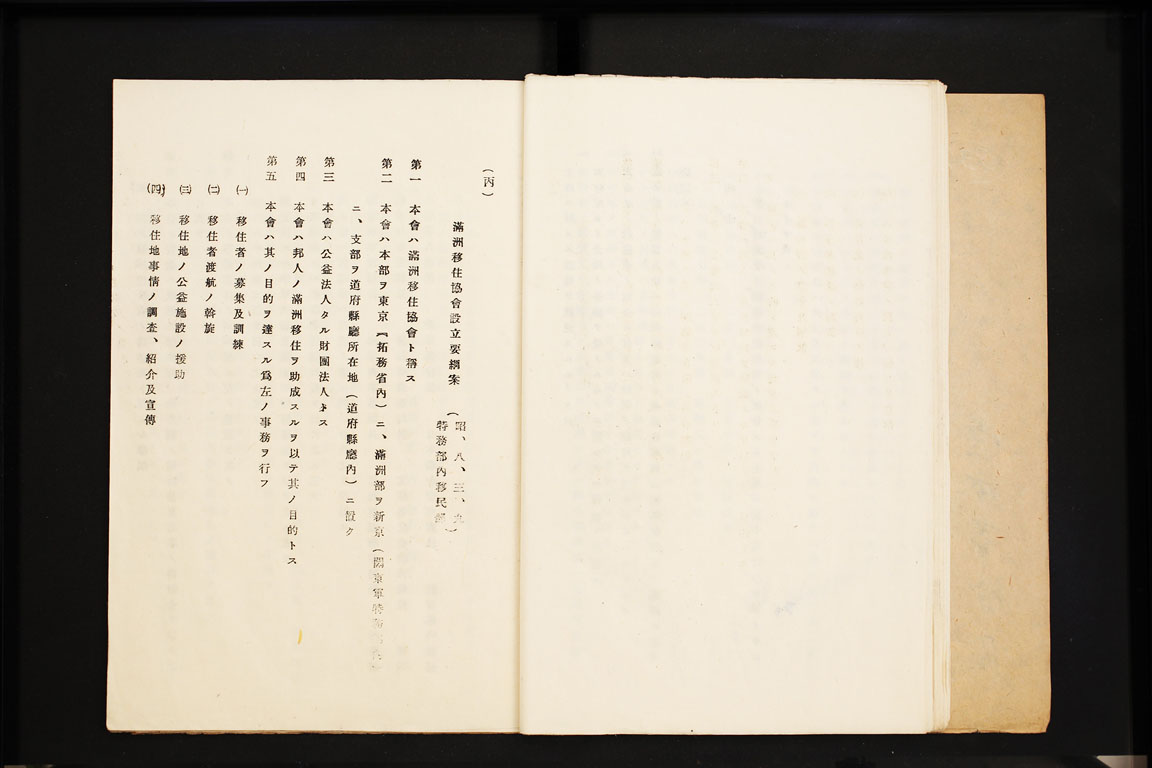 (丙)
滿洲移住協會設立要綱案
(昭、八、三、九
特務部內移民部)
第一 本會ハ滿洲移住協會ト稱ス
第二 本會ハ本部ヲ東京(拓務省內)ニ、滿洲部ヲ新京(關東軍特務部內)
ニ、支部ヲ道府縣廳所在地(道府縣廳內)ニ置ク
第三 本會ハ公益法人タル財團法人トス
第四 本會ハ邦人ノ滿洲移住ヲ助成スルヲ以テ其ノ目的トス
第五 本會ハ其ノ目的ヲ達スル爲左ノ事務ヲ行フ
㈠ 移住者ノ募集及訓練
㈡ 移住者渡航ノ斡旋
㈢ 移住地ノ公益施設ノ援助
㈣ 移住地事情ノ調査、紹介及宣傳